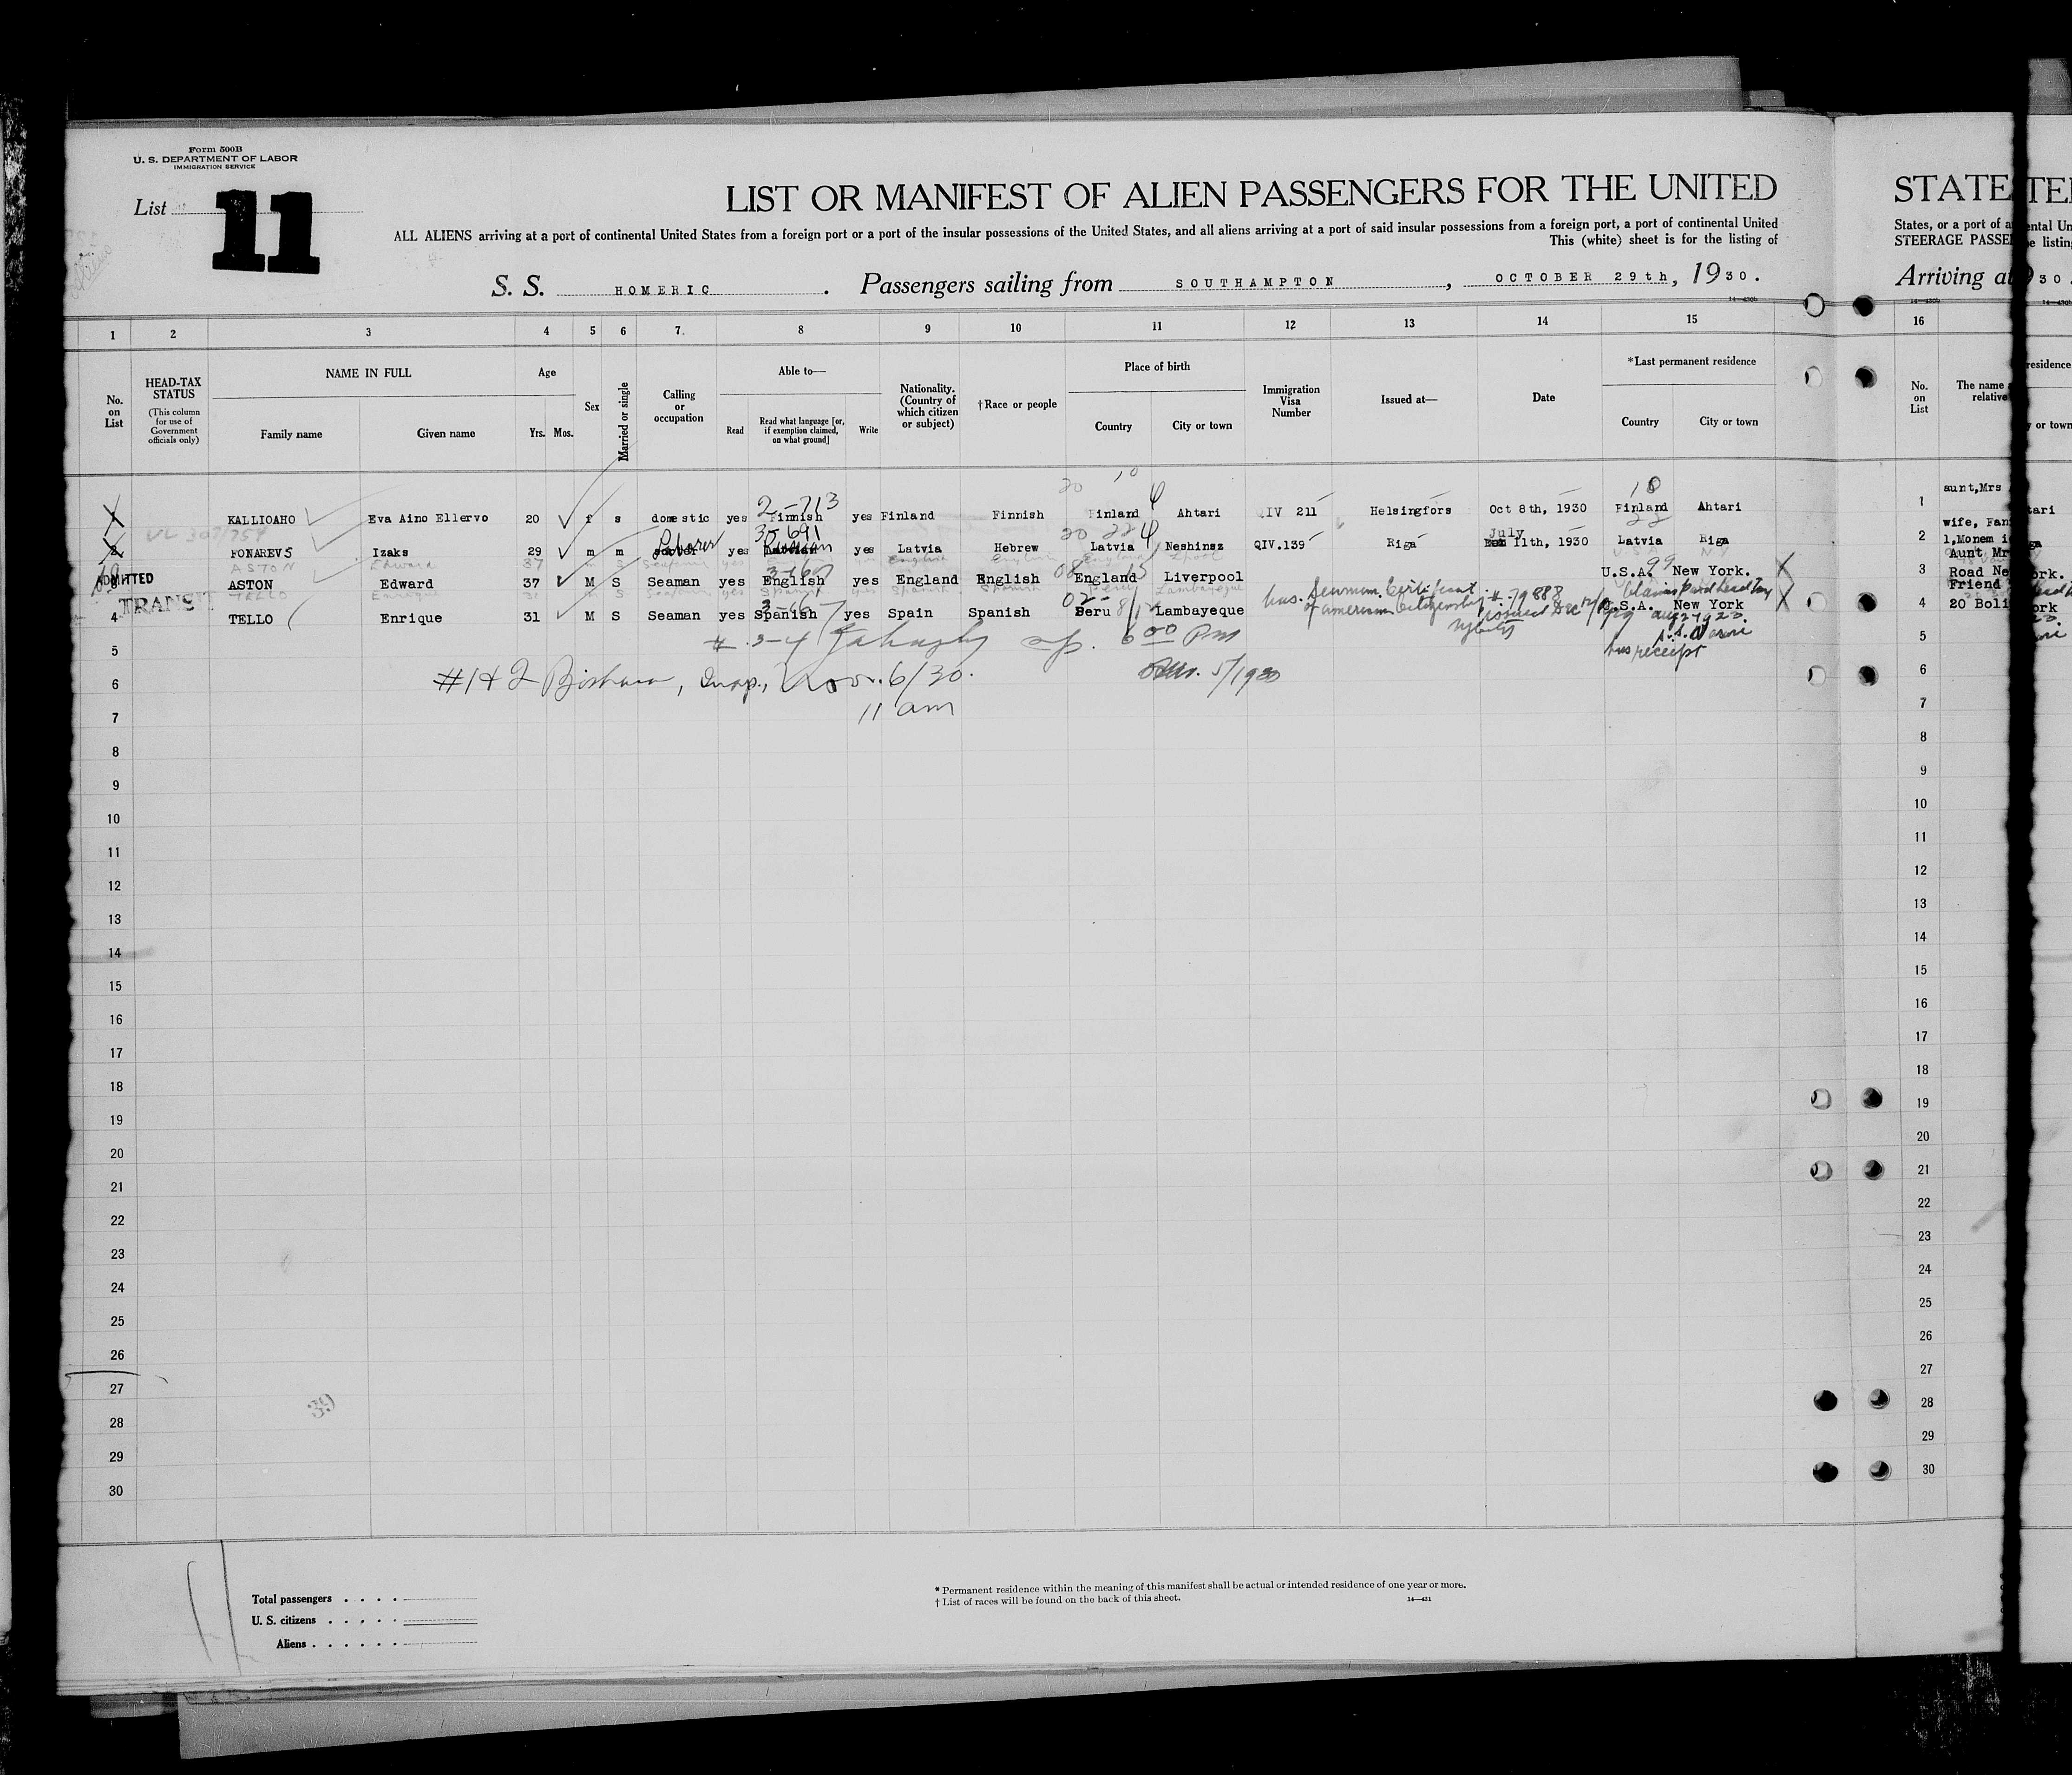 Form 500B
U. S. DEPARTMENT OF LABOR
IMMIGRATION SERVICE
List 11
LIST OR MANIFEST OF ALIEN PASSENGERS FOR THE UNITED
STATE
TE
ALL ALIENS arriving at a port of continental United States from a foreign port or a port of the insular possessions of the United States, and all aliens arriving at a port of said insular possessions from a foreign port, a port of continental United
States, or a port of a
This (white) sheet is for the listing of
STEERAGE PASSE
S. S. HOMERIC. Passengers sailing from SOUTHAMPTON, OCTOBER 29th, 1930.
Arriving at
1 2 3 4 5 6 7 8 9 10 11 12 13 14 15 16
No. on List
HEAD-TAX STATUS
(This column for use of Government officials only)
NAME IN FULL
Family name
Given name
Age
Yrs. Mos.
Sex
Married or single
Calling or occupation
Able to—
Read
Read what language [or, if exemption claimed, on what ground]
Write
Nationality. (Country of which citizen or subject)
†Race or people
Place of birth
Country
City or town
Immigration Visa Number
Issued at—
Date
*Last permanent residence
Country
City or town
No. on List
The name
relative
1 KALLIOAHO Eva Aino Ellervo 20 f s domestic yes 2-713 Finnish yes Finland Finnish Finland Ahtari QIV 211 Helsingfors Oct 8th, 1930 Finland Ahtari 1 aunt, Mrs
2 FONAREVS Izaks 29 m m Laborer yes 35-691 Russian yes Latvia Hebrew Latvia Neshinsz QIV.139 Riga July 11th, 1930 Latvia Riga 2 wife, Fan
ADMITTED
3 ASTON Edward 37 M S Seaman yes English yes England English England Liverpool U.S.A. New York. 3 Aunt Mr
Road Ne
TRANSIT
4 TELLO Enrique 31 M S Seaman yes Spanish yes Spain Spanish Peru Lambayeque has Seaman. Certificate # 79888 of american Citizenship issued Dec U.S.A. New York 4 Friend
20 Boli
claims paid head tax
aug 27 920
has receipt
# 3-4 6 00 PM
5/1930
#1 & 2 Bishara, Insp., Nov. 6/30.
11 am
5
6
7
8
9
10
11
12
13
14
15
16
17
18
19
20
21
22
23
24
25
26
27
28
29
30
39
Total passengers
U. S. citizens
Aliens
* Permanent residence within the meaning of this manifest shall be actual or intended residence of one year or more.
† List of races will be found on the back of this sheet.
14—431